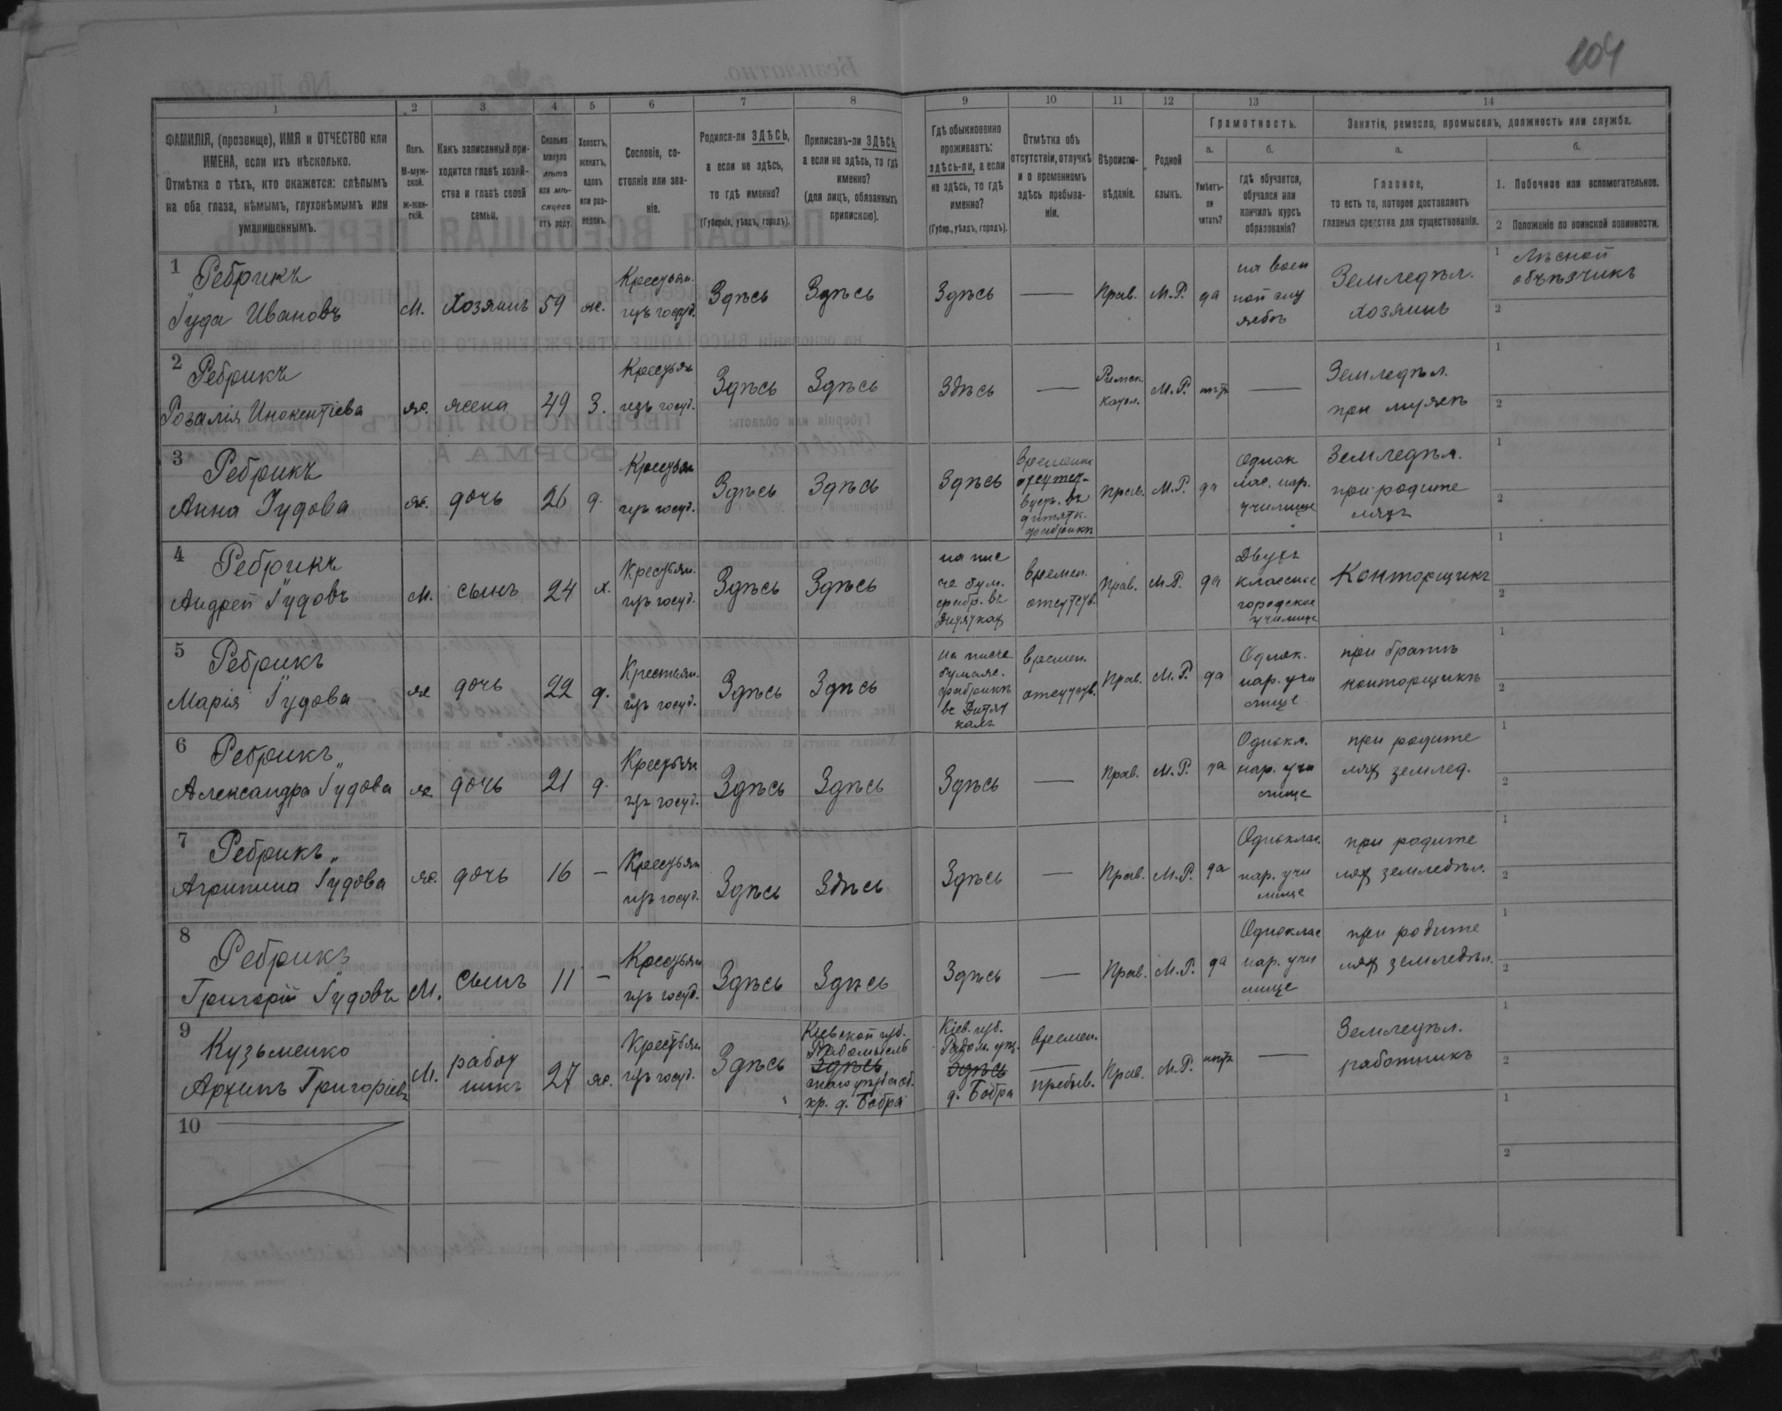 104
1
2
3
4
5
6
7
8
9
10
11
12
13
14
ФАМИЛІЯ, (прозвище), ИМЯ и ОТЧЕСТВО или
ИМЕНА, если ихъ нѣсколько.
Отмѣтка о тѣхъ, кто окажется: слѣпымъ
на оба глаза, нѣмымъ, глухонѣмымъ или
умалишеннымъ.
Полъ.
М-муж-
ской.
Ж-жен-
скій.
Какъ записанный при-
ходится главѣ хозяй-
ства и главѣ своей
семьи.
Сколько
минуло
лѣтъ
или мѣ-
сяцевъ
отъ роду.
Холостъ,
женатъ,
вдовъ
или раз-
веденъ.
Сословіе, со-
стояніе или зва-
ніе.
Родился-ли ЗДѢСЬ,
а если не здѣсь,
то гдѣ именно?
(Губернія, уѣздъ, городъ).
Приписанъ-ли ЗДѢСЬ,
а если не здѣсь, то гдѣ
именно?
(для лицъ, обязанныхъ
припискою).
Гдѣ обыкновенно
проживаетъ:
здѣсь-ли, а если
не здѣсь, то гдѣ
именно?
(Губер., уѣздъ, городъ).
Отмѣтка объ
отсутствіи, отлучкѣ
и о временномъ
здѣсь пребыва-
ніи.
Вѣроиспо-
вѣданіе.
Родной
языкъ.
Грамотность.
а.
Умѣетъ-
ли
читать?
б.
гдѣ обучается,
обучался или
кончилъ курсъ
образованія?
Занятіе, ремесло, промыселъ, должность или служба.
а.
Главное,
то есть то, которое доставляетъ
главныя средства для существованія.
б.
1. Побочное или вспомогательное.
2 Положеніе по воинской повинности.
1
Ребрикъ
Іуда Ивановъ
М.
Хозяинъ
59
ж.
Крестьян.
изъ госуд.
Здѣсь
Здѣсь
Здѣсь
—
Прав.
М.Р.
да
на воен
ной слу
жбѣ
Земледѣл.
хозяинъ
1 Лѣсной
объѣзчикъ
2
2
Ребрикъ
Розалія Инокентіева
ж.
жена
49
З.
Крестьян
изъ госуд.
Здѣсь
Здѣсь
Здѣсь
—
Римск.
катол.
М.Р.
нѣтъ
—
Земледѣл.
при мужѣ
1
2
3
Ребрикъ
Анна Іудова
ж.
дочь
26
д.
Крестьян
изъ госуд.
Здѣсь
Здѣсь
Здѣсь
Прав.
М.Р.
да
Однок
лас. нар.
училище
Земледѣл.
при родите
ляхъ
1
2
4
Ребрикъ
Андрей Іудовъ
М.
сынъ
24
х.
Крестьян.
изъ госуд.
Здѣсь
Здѣсь
на пис
че бум.
фабр. въ
Дитяткахъ
времен.
отсутств.
Прав.
М.Р.
да
Двухъ
классное
городское
училище
Конторщикъ
1
2
5
Ребрикъ
Марія Іудова
ж
дочь
22
д.
Крестьян.
изъ госуд.
Здѣсь
Здѣсь
На писче
бумаж.
фабрикѣ
въ Дитят
кахъ
времен.
отсутств.
Прав.
М.Р.
да
Однок.
нар. учи
лище
при братѣ
конторщикѣ
1
2
6
Ребрикъ
Александра Іудова
ж
дочь
21
д.
Крестьян
изъ госуд.
Здѣсь
Здѣсь
Здѣсь
—
Прав.
М.Р.
да
Однокл.
нар. учи
лище
при родите
ляхъ землед.
1
2
7
Ребрикъ
Агрипина Іудова
ж.
дочь
16
—
Крестьян
изъ госуд.
Здѣсь
Здѣсь
Здѣсь
—
Прав.
М.Р.
да
Одноклас.
нар. учи
лище
при родите
ляхъ земледѣл.
1
2
8
Ребрикъ
Григорій Іудовъ
М.
сынъ
11
—
Крестьян
изъ госуд.
Здѣсь
Здѣсь
Здѣсь
—
Прав.
М.Р.
да
Одноклас
нар. учи
лище
при родите
ляхъ земледѣл.
1
2
9
Кузьменко
Архипъ Григоріевъ
М.
работ
никъ
27
ж.
Крестьян
изъ госуд.
Здѣсь
Кіевской губ.
Радомысль
Здѣсь
кр. д. Бобра
Кіев. губ.
Радом. уѣз.
Здѣсь
д. Бобра
Времен.
пребыв.
Прав.
М.Р.
нѣтъ
—
Земледѣл.
работникъ
1
2
10
1
2